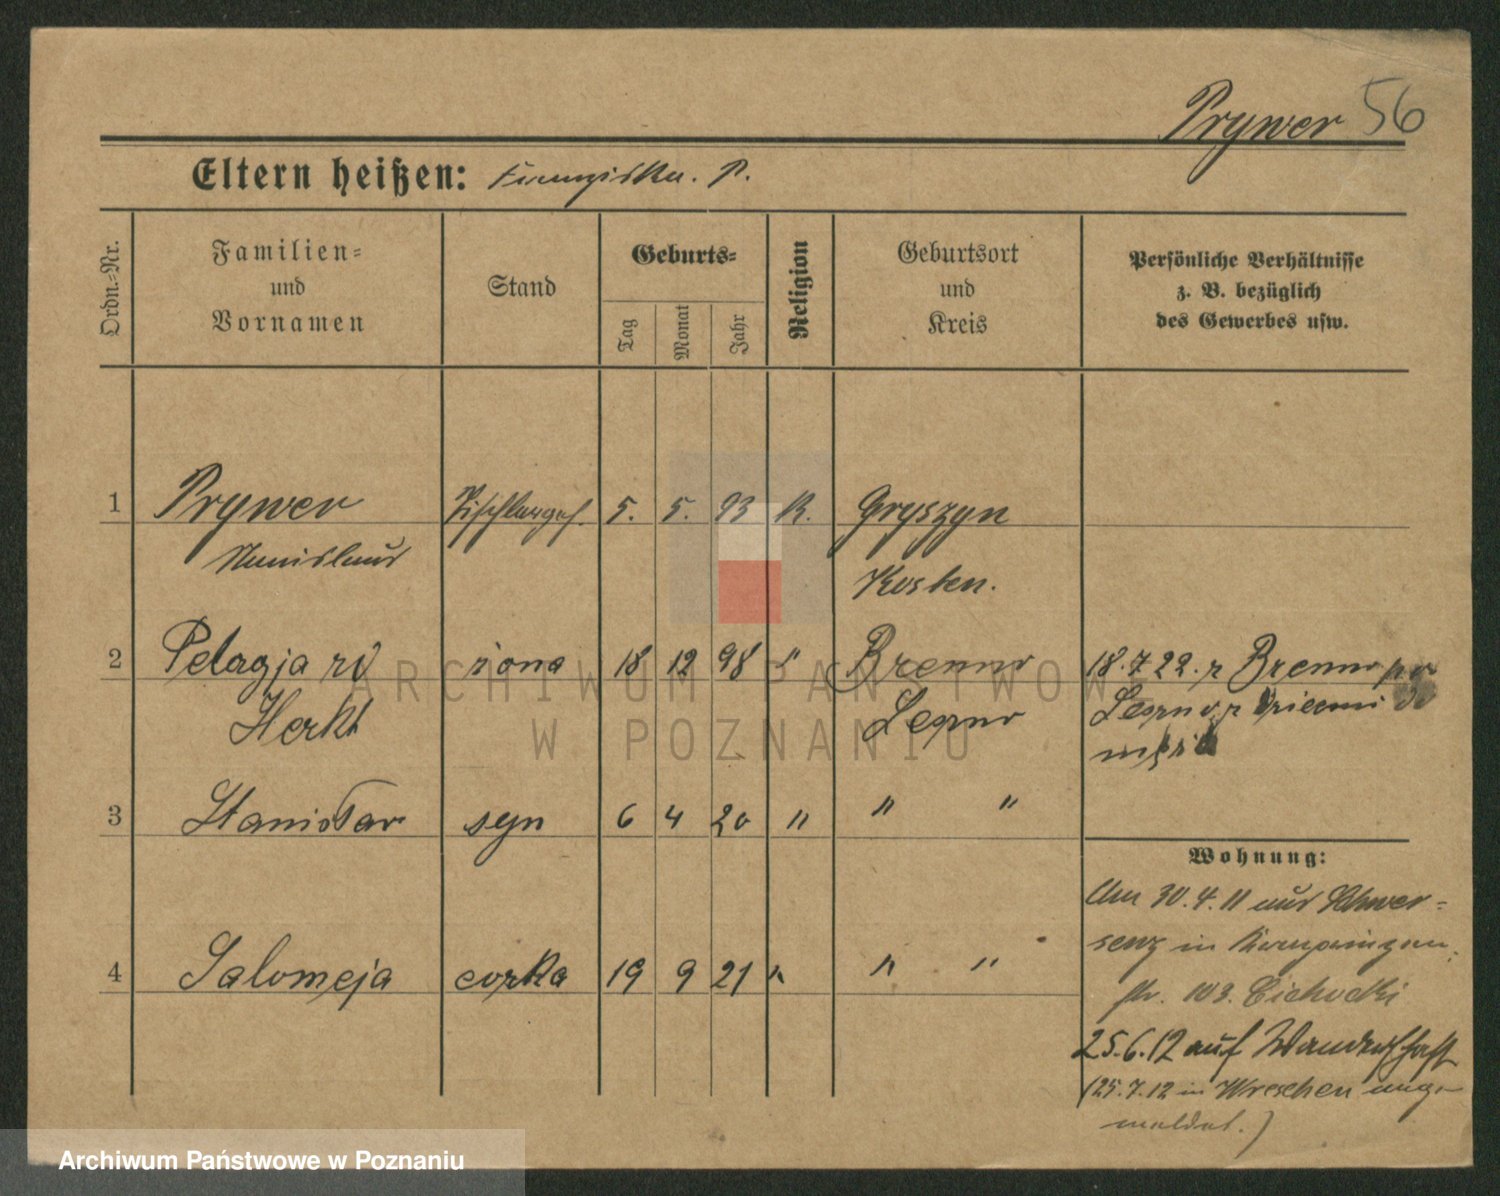 Prywer 56
Eltern heißen: Franziska. P.
Ordn.-Nr.
Familien-
und
Vornamen
Stand
Geburts-
Tag
Monat
Jahr
Religion
Geburtsort
und
Kreis
Persönliche Verhältnisse
z. B. bezüglich
des Gewerbes usw.
1 Prywer Tischlerges. 5. 5. 93 K. Gryszyn
Stanislaus
Kosten.
2 Pelagja zd żona 18 12 98 " Brenno 18.7.22. z Brenno pow
Herkt Leszno Leszno z
3 Stanisław syn 6 4 20 " " "
Wohnung:
Am 30.4.11 aus Schwer-
senz in
4 Salomeja corka 19 9 21 " " "
str. 103. Cichocki
25.6.12 auf Wanderschaft
(25.7.12 in Wreschen ange-
meldet.)
ARCHIWUM PAŃSTWOWE
W POZNANIU
Archiwum Państwowe w Poznaniu